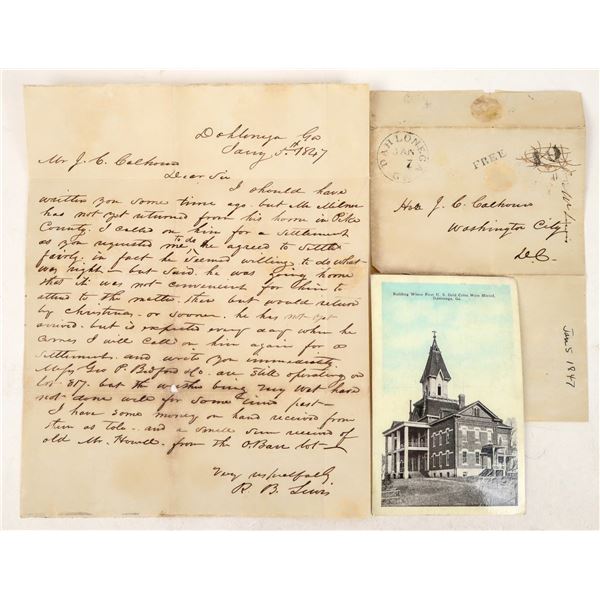 Dahlonega Ga
Jany 5th 1847
Mr J. C. Calhoun
Dear Sir
I should have
written you some time ago. but Mr Milner
has not yet returned from his home in Pike
County. I called on him for a Settlement
as you requested me, he agreed to settle
to do
fairly. in fact he seemed willing to do what
was right - but said he was going home
that it was not convenient for him to
attend to the matter then but would return
by christmas - or sooner. he has not yet
arrived. but is expected every day when he
comes I will call on him again for a
Settlement - and write you immediately
Messrs Geo P. Bedford & Co. are still operating on
Lot 817. but the weather being very wet have
not done well for some time past -
I have some money on hand received from
them as tole - and a small sum received of
old Mr. Howell - from the O.Barr lot -
Very respectfully
R. B. Lewis
DAHLONEGA
JAN
7
Ga
FREE
10
Mr Lewis
Hon J. C. Calhoun
Washington City
D.C.
Jan 5 1847
Building Where First U. S. Gold Coins Were Minted,
Dahlonega, Ga.